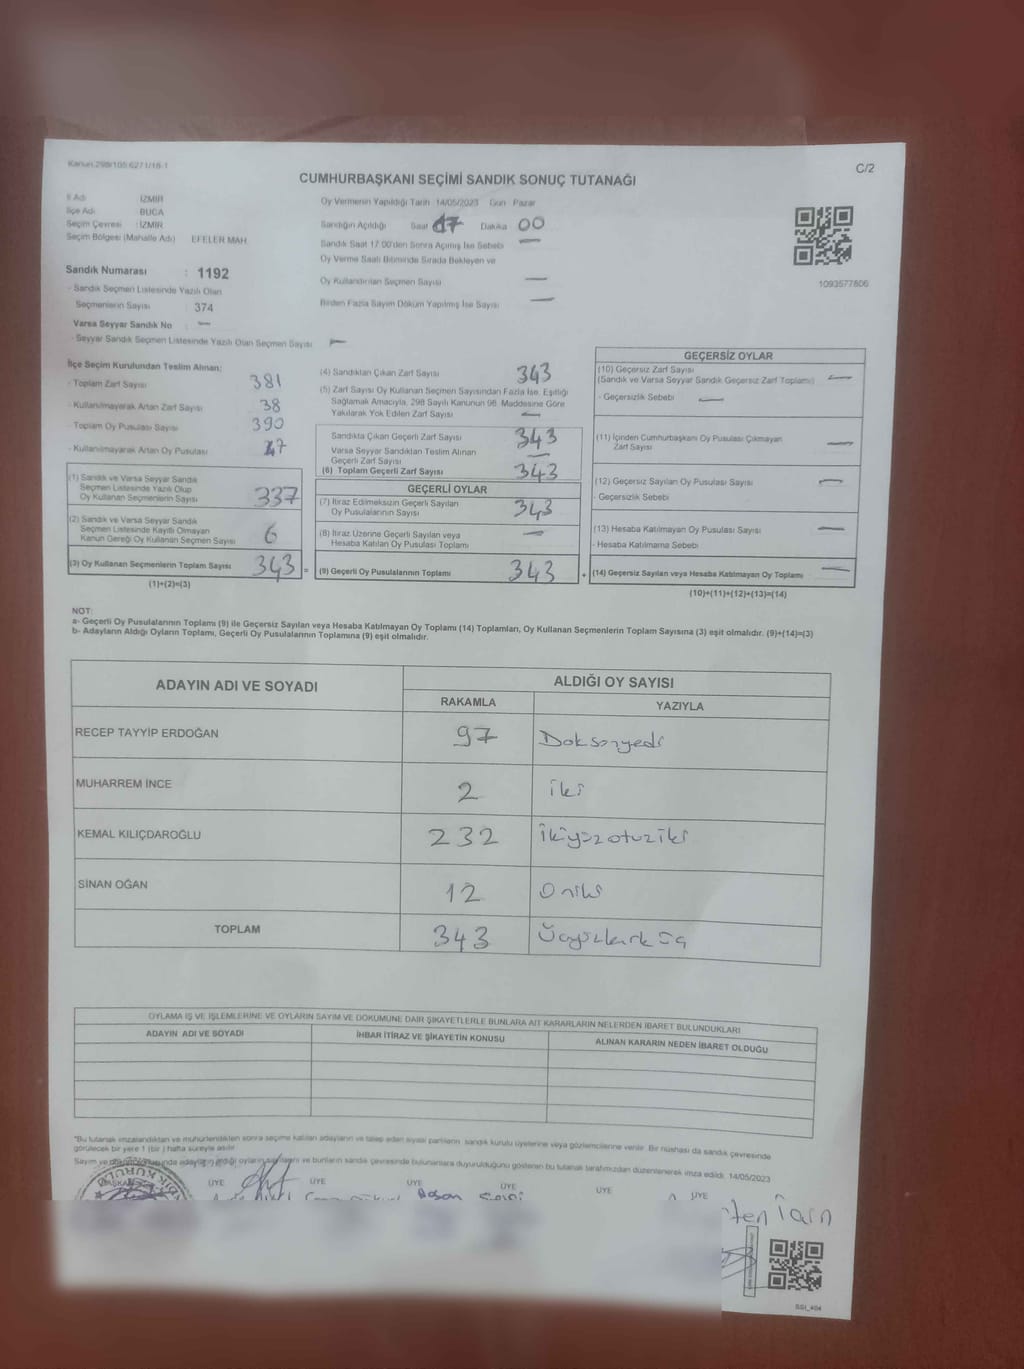 Kanun:298/105 6271/18-1
C/2
CUMHURBAŞKANI SEÇİMİ SANDIK SONUÇ TUTANAĞI
İl Adı : İZMİR
İlçe Adı : BUCA
Seçim Çevresi : İZMİR
Seçim Bölgesi (Mahalle Adı) EFELER MAH.
Sandık Numarası : 1192
- Sandık Seçmen Listesinde Yazılı Olan
Seçmenlerin Sayısı : 374
Varsa Seyyar Sandık No : —
- Seyyar Sandık Seçmen Listesinde Yazılı Olan Seçmen Sayısı : —
Oy Vermenin Yapıldığı Tarih 14/05/2023 Gün Pazar
Sandığın Açıldığı Saat 17 Dakika 00
Sandık Saat 17:00'den Sonra Açılmış İse Sebebi —
Oy Verme Saati Bitiminde Sırada Bekleyen ve
Oy Kullandırılan Seçmen Sayısı —
Birden Fazla Sayım Döküm Yapılmış İse Sayısı —
1093577806
İlçe Seçim Kurulundan Teslim Alınan:
- Toplam Zarf Sayısı 381
- Kullanılmayarak Artan Zarf Sayısı 38
- Toplam Oy Pusulası Sayısı 390
- Kullanılmayarak Artan Oy Pusulası 47
(1) Sandık ve Varsa Seyyar Sandık
Seçmen Listesinde Yazılı Olup
Oy Kullanan Seçmenlerin Sayısı 337
(2) Sandık ve Varsa Seyyar Sandık
Seçmen Listesinde Kayıtlı Olmayan
Kanun Gereği Oy Kullanan Seçmen Sayısı 6
(3) Oy Kullanan Seçmenlerin Toplam Sayısı 343 =
(1)+(2)=(3)
(4) Sandıktan Çıkan Zarf Sayısı 343
(5) Zarf Sayısı Oy Kullanan Seçmen Sayısından Fazla İse, Eşitliği
Sağlamak Amacıyla, 298 Sayılı Kanunun 98. Maddesine Göre
Yakılarak Yok Edilen Zarf Sayısı —
Sandıkta Çıkan Geçerli Zarf Sayısı 343
Varsa Seyyar Sandıktan Teslim Alınan
Geçerli Zarf Sayısı —
(6) Toplam Geçerli Zarf Sayısı 343
GEÇERLİ OYLAR
(7) İtiraz Edilmeksizin Geçerli Sayılan
Oy Pusulalarının Sayısı 343
(8) İtiraz Üzerine Geçerli Sayılan veya
Hesaba Katılan Oy Pusulası Toplamı —
(9) Geçerli Oy Pusulalarının Toplamı 343 +
GEÇERSİZ OYLAR
(10) Geçersiz Zarf Sayısı
(Sandık ve Varsa Seyyar Sandık Geçersiz Zarf Toplamı) —
- Geçersizlik Sebebi —
(11) İçinden Cumhurbaşkanı Oy Pusulası Çıkmayan
Zarf Sayısı —
(12) Geçersiz Sayılan Oy Pusulası Sayısı —
- Geçersizlik Sebebi
(13) Hesaba Katılmayan Oy Pusulası Sayısı —
- Hesaba Katılmama Sebebi
(14) Geçersiz Sayılan veya Hesaba Katılmayan Oy Toplamı —
(10)+(11)+(12)+(13)=(14)
NOT:
a- Geçerli Oy Pusulalarının Toplamı (9) ile Geçersiz Sayılan veya Hesaba Katılmayan Oy Toplamı (14) Toplamları, Oy Kullanan Seçmenlerin Toplam Sayısına (3) eşit olmalıdır. (9)+(14)=(3)
b- Adayların Aldığı Oyların Toplamı, Geçerli Oy Pusulalarının Toplamına (9) eşit olmalıdır.
ADAYIN ADI VE SOYADI ALDIĞI OY SAYISI
RAKAMLA YAZIYLA
RECEP TAYYİP ERDOĞAN 97 Doksanyedi
MUHARREM İNCE 2 iki
KEMAL KILIÇDAROĞLU 232 ikiyüzotuziki
SİNAN OĞAN 12 Oniki
TOPLAM 343 Üçyüzkırküç
OYLAMA İŞ VE İŞLEMLERİNE VE OYLARIN SAYIM VE DÖKÜMÜNE DAİR ŞİKAYETLERLE BUNLARA AİT KARARLARIN NELERDEN İBARET BULUNDUKLARI
ADAYIN ADI VE SOYADI İHBAR İTİRAZ VE ŞİKAYETİN KONUSU ALINAN KARARIN NEDEN İBARET OLDUĞU
*Bu tutanak imzalandıktan ve mühürlendikten sonra seçime katılan adayların ve talep eden siyasi partilerin sandık kurulu üyelerine veya gözlemcilerine verilir. Bir nüshası da sandık çevresinde
görülecek bir yere 1 (bir) hafta süreyle asılır.
Sayım ve adayların aldığı oyların ve bunların sandık çevresinde bulunanlara duyurulduğunu gösteren bu tutanak tarafımızdan düzenlenerek imza edildi. 14/05/2023
BAŞKAN ÜYE ÜYE ÜYE ÜYE ÜYE ÜYE
SSI_404